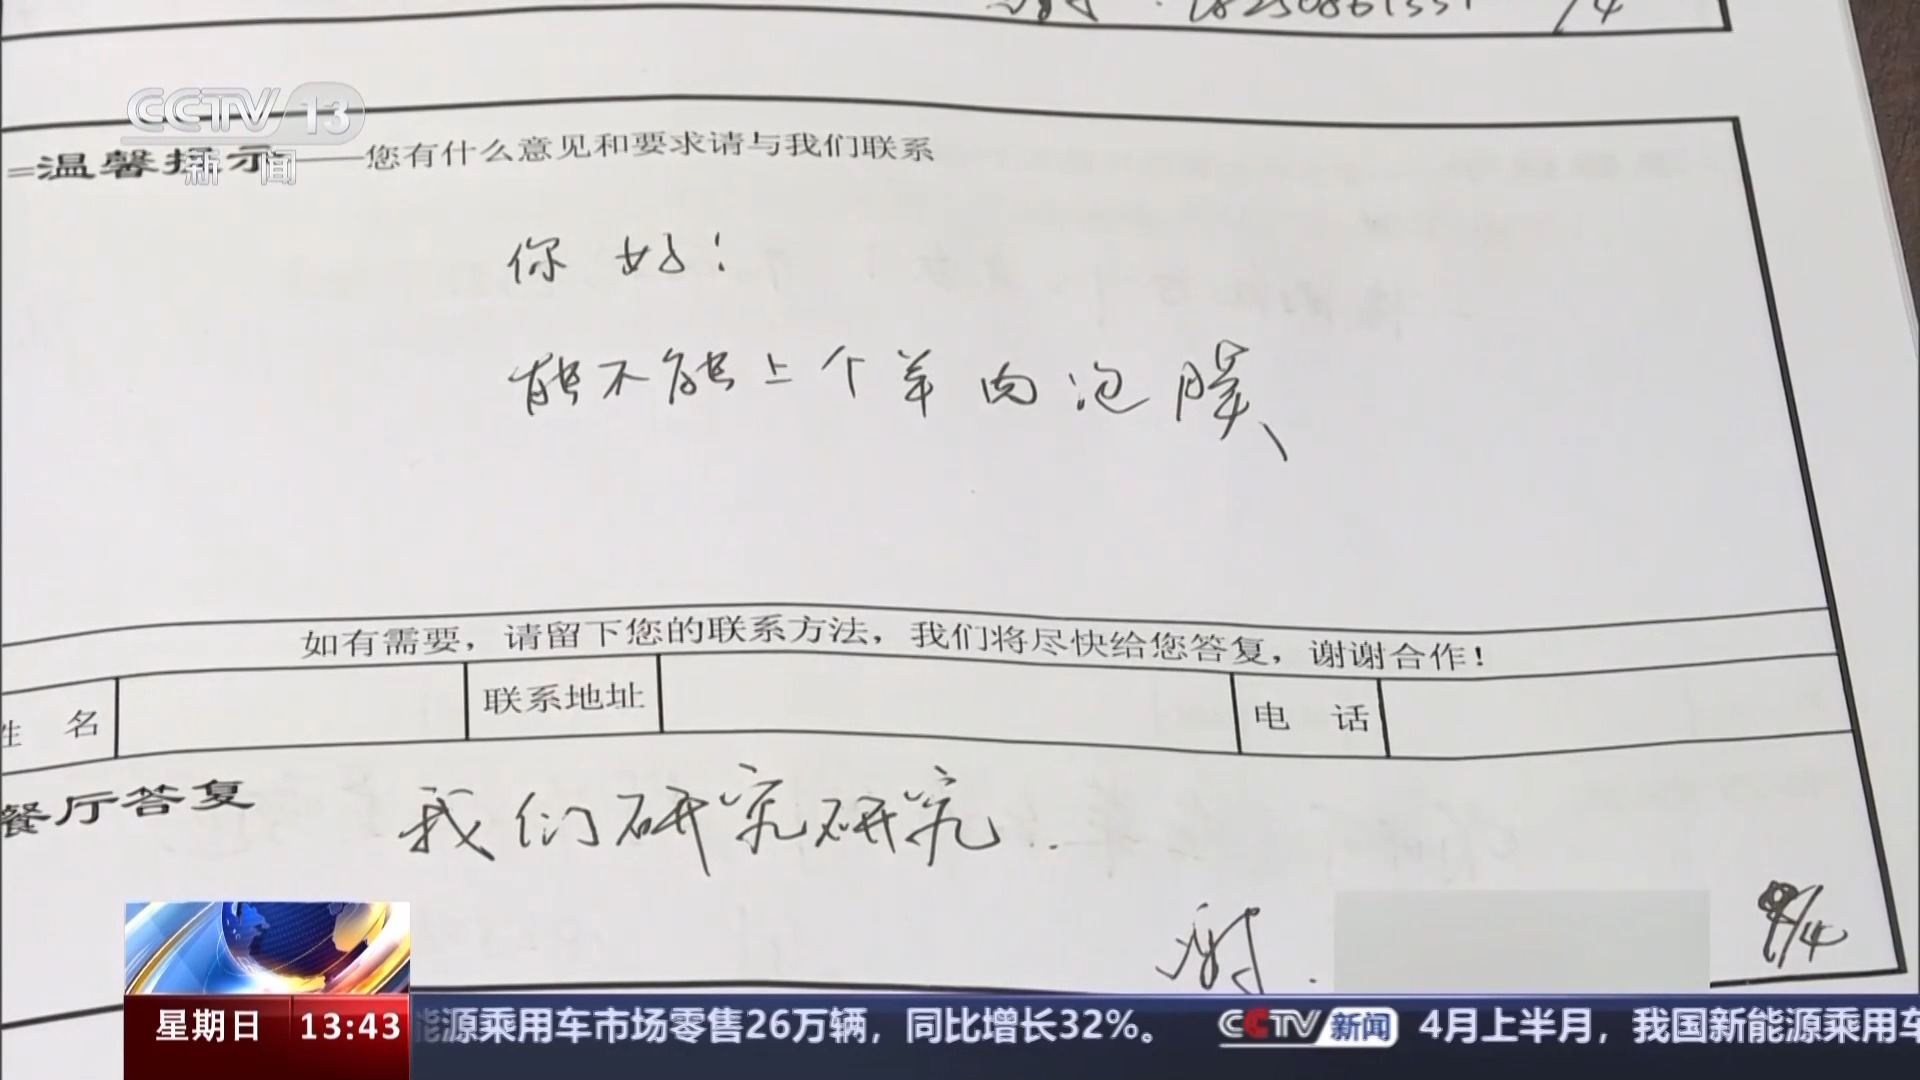 CCTV 13
新闻
=温馨提示——您有什么意见和要求请与我们联系
你好！
能不能上个羊肉泡膜
如有需要，请留下您的联系方法，我们将尽快给您答复，谢谢合作！
姓 名 联系地址 电 话
餐厅答复 我们研究研究.
谢 9/4
星期日 13:43 能源乘用车市场零售26万辆，同比增长32%。 CCTV 新闻 4月上半月，我国新能源乘用车